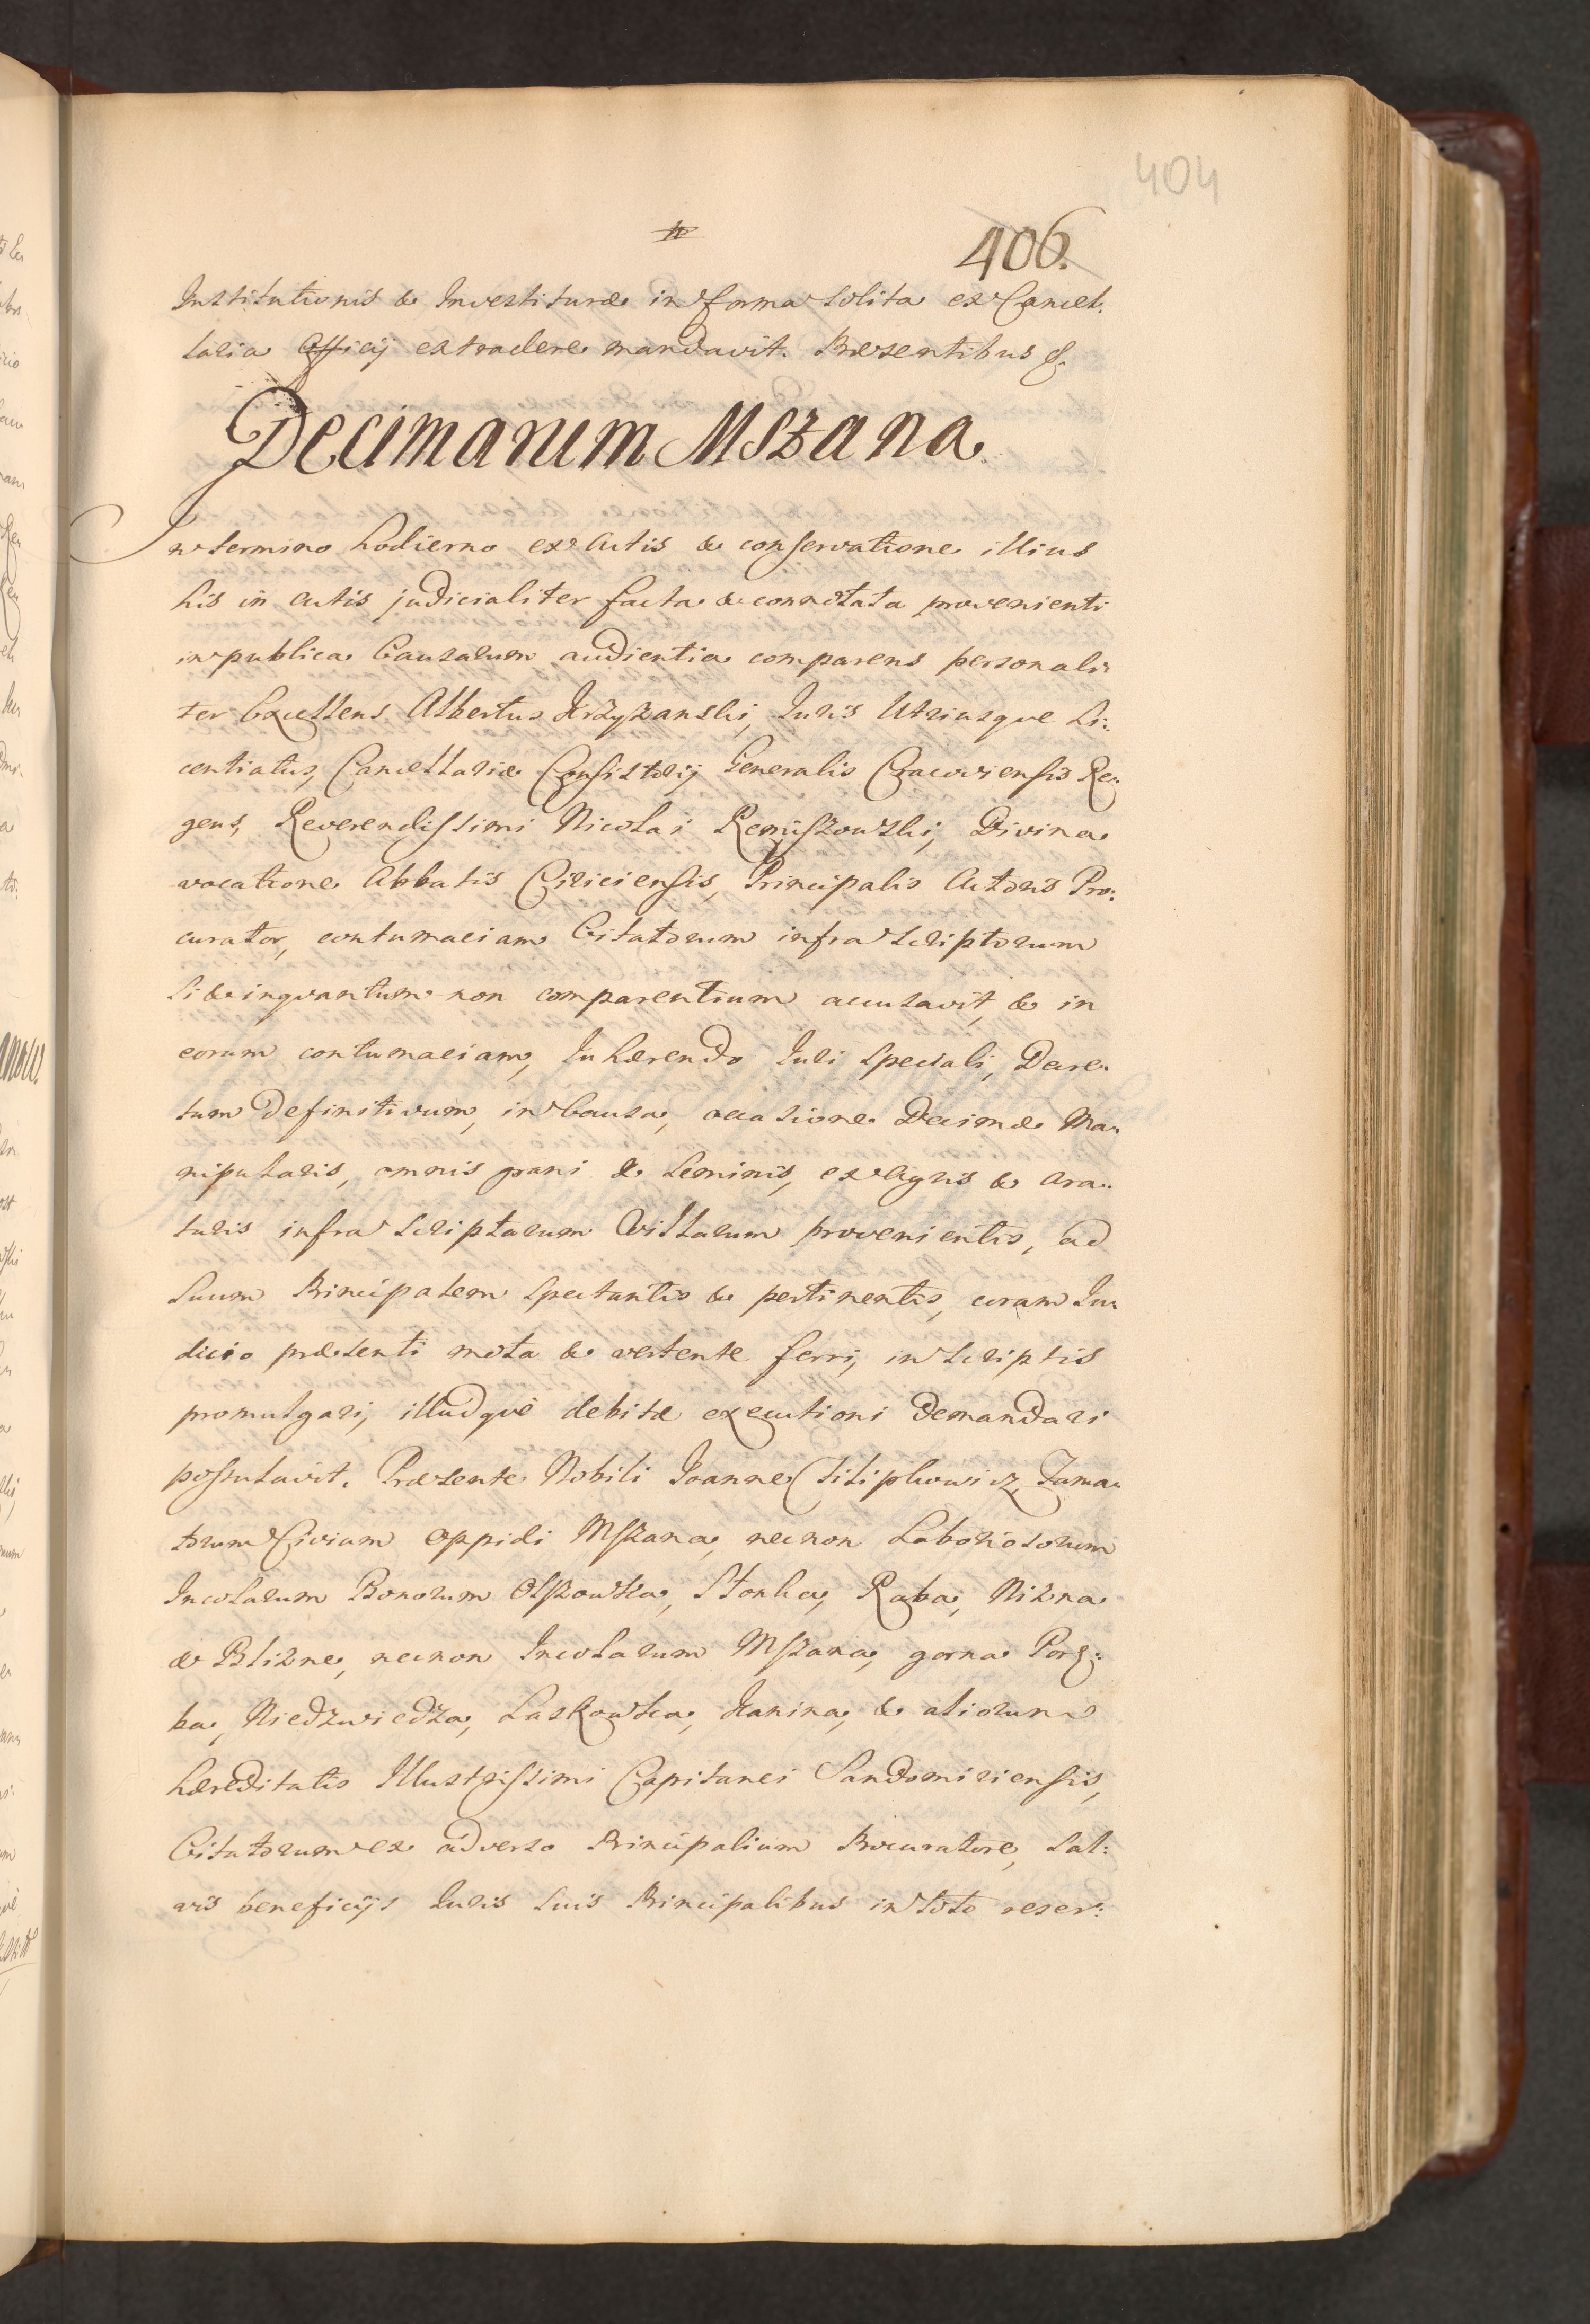 404
406.
Institutionis & Investituræ in forma solita ex Cancel:
laria Officij extradere mandavit. Præsentibus &
Decimarum Mszana
In termino hodierno ex Actis & conservatione illius
his in Actis judicialiter facta & connotata provenienti
in publica Causarum audientia comparens personali:
ter Excellens Albertus Krzyzanski, Juris Utriusque Li:
centiatus, Cancellariæ Consistorij Generalis Cracoviensis Re:
gens, Reverendissimi Nicolai Remiszowski, Divina
vocatione Abbatis Ciriciensis, Principalis Actoris Pro:
curator, contumaciam Citatorum infra scriptorum
si & inqvantum non comparentium accusavit, & in
eorum contumaciam, Inhærendo Juri speciali, Decre:
tum Definitivum, in Causa, occasione Decimæ Ma:
nipularis, omnis grani & seminis, ex Agris & Ara:
turis infra scriptarum Villarum provenientis, ad
suum Principalem spectantis & pertinentis, coram Ju:
dicio præsenti mota & vertente ferri, in scriptis
promulgari, illudqvè debitæ executioni demandari
postulavit. Præsente Nobili Joanne Filiphowicz, Fama:
torum Civium Oppidi Mszana, necnon Laboriosorum
Incolarum Bonorum Olszowka, Slonka, Raba, Nizna
& Blizne, necnon Incolarum Mszana, gorna Porę:
ba, Niedzwiedza, Laskowka, Kanina, & aliorum
hæreditatis Illustrissimi Capitanei Sandomiriensis,
Citatorum ex adverso Principalium Procuratore, sal:
vis beneficijs Juris suis Principalibus in toto reser: